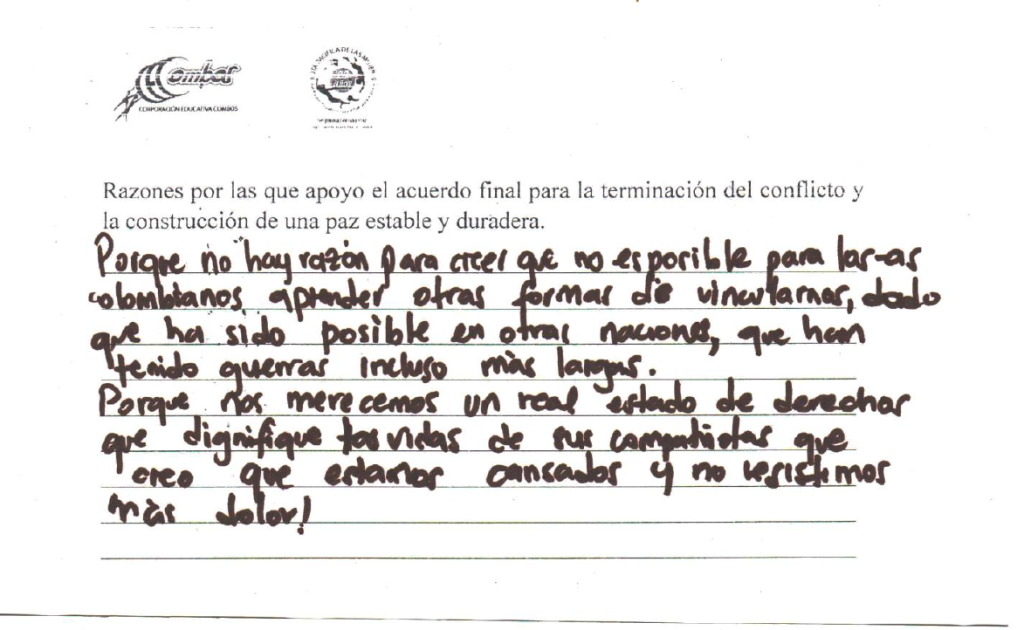 Combos
CORPORACIÓN EDUCATIVA COMBOS
Razones por las que apoyo el acuerdo final para la terminación del conflicto y
la construcción de una paz estable y duradera.
Porque no hay razón para creer que no es posible para los-as
colombianos aprender otras formas de vincularnos, dado
que ha sido posible en otras naciones, que han
tenido guerras incluso más largas.
Porque nos merecemos un real estado de derechos
que dignifique las vidas de sus compatriotas que
creo que estamos cansados y no resistimos
más dolor!